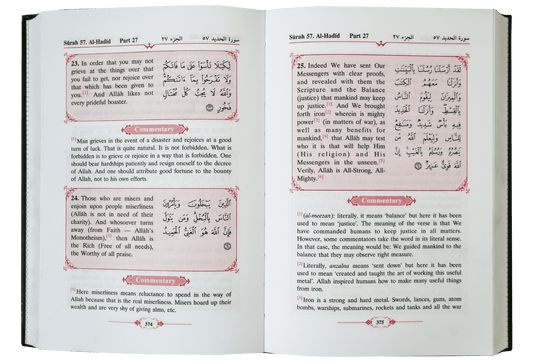 Sûrah 57. Al-Hadid Part 27 الجزء ٢٧ سورة الحديد ٥٧
23. In order that you may not
grieve at the things over that
you fail to get, nor rejoice over
that which has been given to
you.[1] And Allâh likes not
every prideful boaster.
لِّكَيْلَا تَأْسَوْا عَلَىٰ مَا فَاتَكُمْ
وَلَا تَفْرَحُوا بِمَا ءَاتَىٰكُمْ
وَاللَّهُ لَا يُحِبُّ كُلَّ مُخْتَالٍ
فَخُورٍ
Commentary
[1] Man grieves in the event of a disaster and rejoices at a good
turn of luck. That is quite natural. It is not forbidden. What is
forbidden is to grieve or rejoice in a way that is forbidden. One
should bear hardships patiently and resign oneself to the decree
of Allah. And one should attribute good fortune to the bounty
of Allah, not to his own efforts.
24. Those who are misers and
enjoin upon people miserliness
(Allâh is not in need of their
charity). And whosoever turns
away (from Faith — Allâh's
Monotheism),[1] then Allâh is
the Rich (Free of all needs),
the Worthy of all praise.
الَّذِينَ يَبْخَلُونَ وَيَأْمُرُونَ
النَّاسَ بِالْبُخْلِ وَمَن يَتَوَلَّ
فَإِنَّ اللَّهَ هُوَ الْغَنِيُّ الْحَمِيدُ
Commentary
[1] Here miserliness means reluctance to spend in the way of
Allah because that is the real miserliness. Misers hoard up their
wealth and are very shy of giving alms, etc.
374
Sûrah 57. Al-Hadid Part 27 الجزء ٢٧ سورة الحديد ٥٧
25. Indeed We have sent Our
Messengers with clear proofs,
and revealed with them the
Scripture and the Balance
(justice) that mankind may keep
up justice.[1] And We brought
forth iron[2] wherein is mighty
power[3] (in matters of war), as
well as many benefits for
mankind,[4] that Allâh may test
who it is that will help Him
(His religion) and His
Messengers in the unseen.[5]
Verily, Allâh is All-Strong, All-
Mighty.[6]
لَقَدْ أَرْسَلْنَا رُسُلَنَا بِالْبَيِّنَٰتِ
وَأَنزَلْنَا مَعَهُمُ الْكِتَٰبَ
وَالْمِيزَانَ لِيَقُومَ النَّاسُ
بِالْقِسْطِ وَأَنزَلْنَا الْحَدِيدَ
فِيهِ بَأْسٌ شَدِيدٌ وَمَنَٰفِعُ
لِلنَّاسِ وَلِيَعْلَمَ اللَّهُ مَن
يَنصُرُهُ وَرُسُلَهُ بِالْغَيْبِ إِنَّ
اللَّهَ قَوِيٌّ عَزِيزٌ
Commentary
[1] (al-meezan): literally, it means 'balance' but here it has been
used to mean 'justice'. The meaning of the verse is that We
have commanded humans to keep justice in all matters.
However, some commentators take the word in its literal sense.
In that case, the meaning would be: We guided mankind to the
balance that they may observe right measure.
[2] Literally, anzalna means 'sent down' but here it has been
used to mean 'created and taught the art of working this useful
metal'. Allah inspired humans how to make many useful things
from iron.
[3] Iron is a strong and hard metal. Swords, lances, guns, atom
bombs, warships, submarines, rockets and tanks and all the war
375